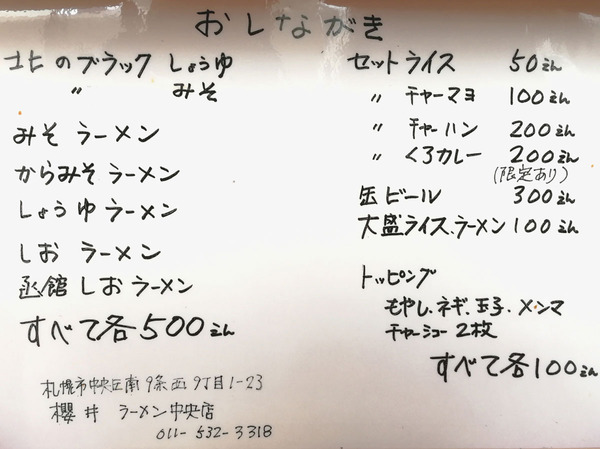 おしながき
北のブラック しょうゆ
〃 みそ
みそ ラーメン
からみそ ラーメン
しょうゆ ラーメン
しお ラーメン
函館 しお ラーメン
すべて各500えん
札幌市中央区南9条西9丁目1-23
櫻井 ラーメン中央店
011-532-3318
セットライス 50えん
〃 チャーマヨ 100えん
〃 チャーハン 200えん
〃 くろカレー 200えん
(限定あり)
缶ビール 300えん
大盛ライス、ラーメン 100えん
トッピング
もやし、ネギ、玉子、メンマ
チャーシュー 2枚
すべて各100えん